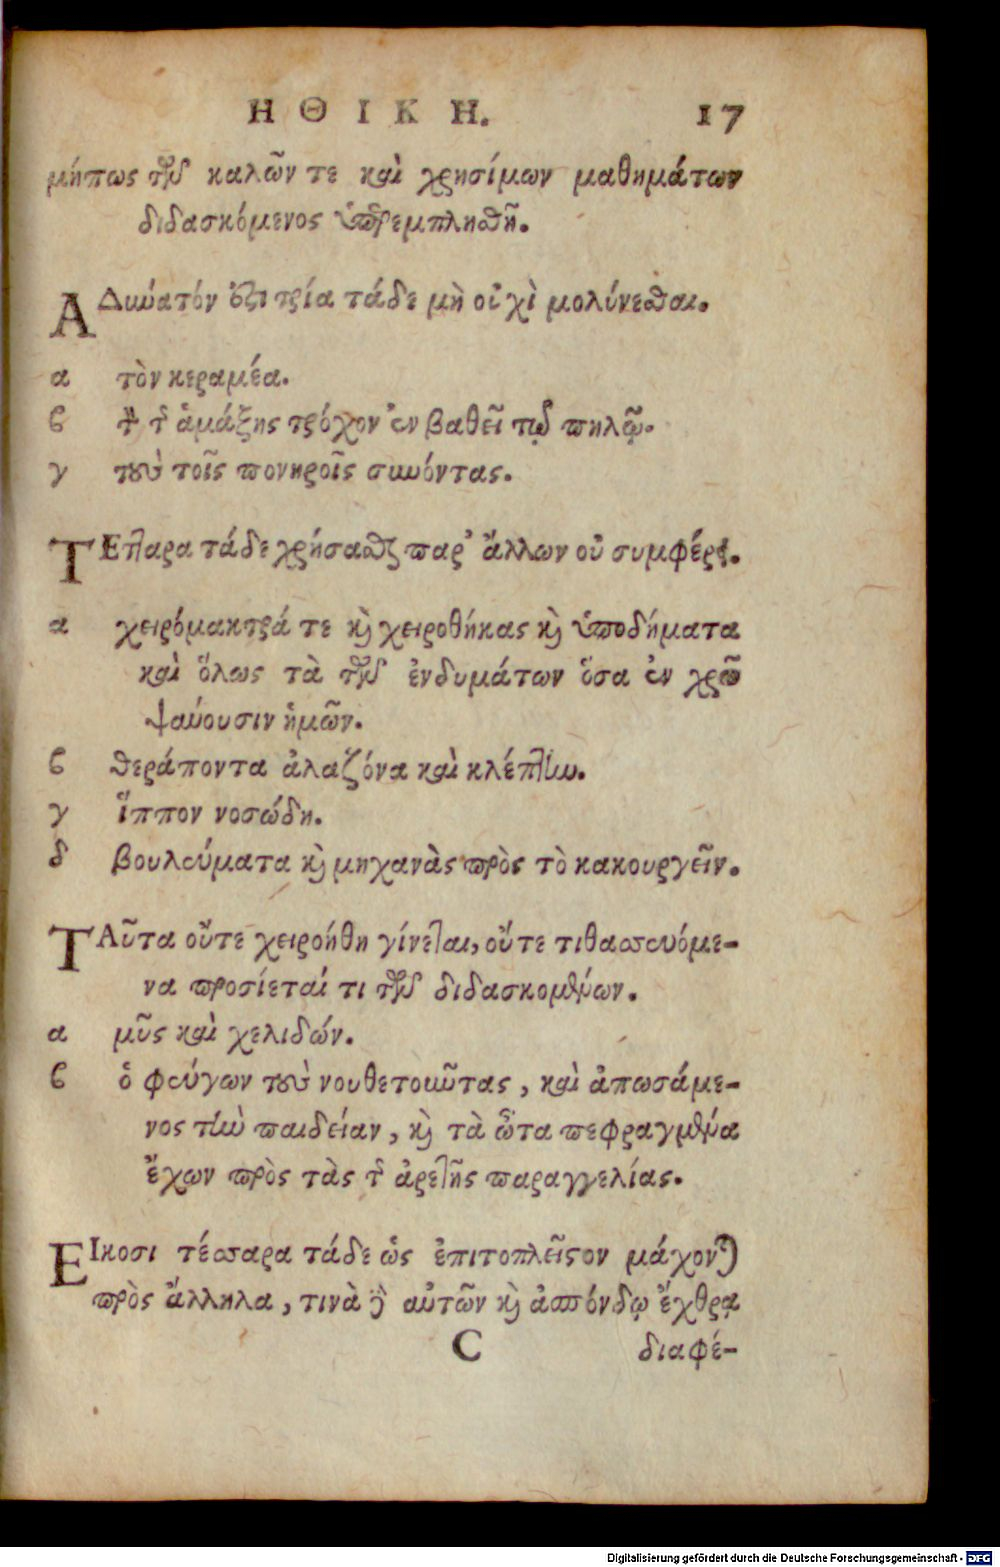 ΗΘΙΚΗ. 17
μήπως τῶν καλῶν τε καὶ χρησίμων μαθημάτων
διδασκόμενος ὑπερεμπλησθῇ.
ΑΔυνατόν ἐστι τρία τάδε μὴ οὐχὶ μολύνεσθαι.
α τὸν κεραμέα.
ϐ τὸν τῆς ἁμάξης τρόχον ἐν βαθεῖ τῷ πηλῷ.
γ τοὺς τοῖς πονηροῖς συνόντας.
ΤΕτταρα τάδε χρήσασθαι παρ’ ἄλλων οὐ συμφέρει.
α χειρόμακτρά τε καὶ χειροθήκας καὶ ὑποδήματα
καὶ ὅλως τὰ τῶν ἐνδυμάτων ὅσα ἐν χρῷ
ψαύουσιν ἡμῶν.
ϐ θεράποντα ἀλαζόνα καὶ κλέπτην.
γ ἵππον νοσώδη.
δ βουλεύματα καὶ μηχανὰς πρὸς τὸ κακουργεῖν.
ΤΑῦτα οὔτε χειροήθη γίνεται, οὔτε τιθασσευόμε-
να προσίεταί τι τῶν διδασκομένων.
α μῦς καὶ χελιδών.
ϐ ὁ φεύγων τοὺς νουθετοῦντας, καὶ ἀπωσάμε-
νος τὴν παιδείαν, καὶ τὰ ὦτα πεφραγμένα
ἔχων πρὸς τὰς τῆς ἀρετῆς παραγγελίας.
ΕΙκοσι τέσσαρα τάδε ὡς ἐπιτοπλεῖστον μάχονται
πρὸς ἄλληλα, τινὰ δὲ αὐτῶν καὶ ἀσπόνδῳ ἔχθρᾳ
C διαφέ-
Digitalisierung gefördert durch die Deutsche Forschungsgemeinschaft - DFG